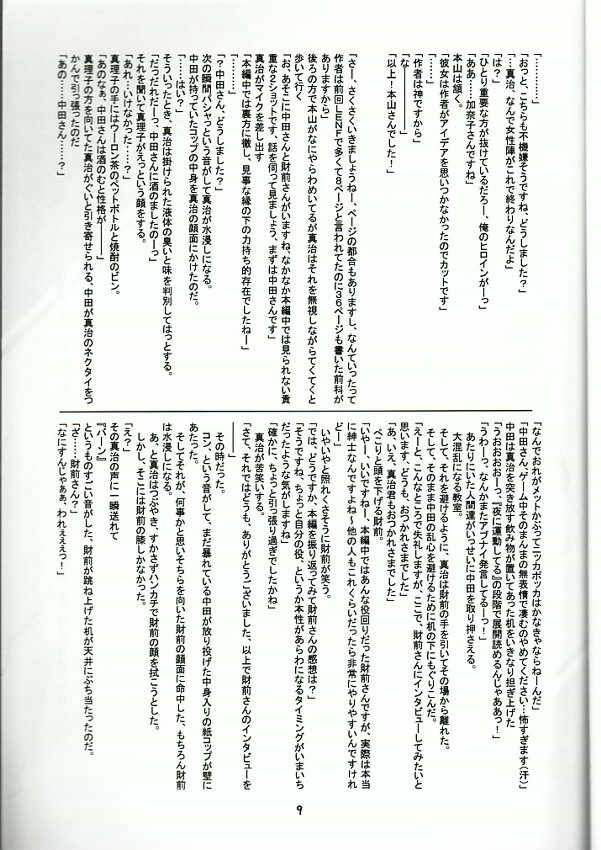 「…………」
「おっと、こちらも不機嫌そうですね、どうしました？」
「…真治、なんで女性陣がこれで終わりなんだよ」
「は？」
「ひとり重要な方が抜けているだろー、俺のヒロインがーっ」
「ああ……加奈子さんですね」
本山は頷く。
「彼女は作者がアイデアを思いつかなかったのでカットです」
「な――」
「作者は神ですから」
「以上！本山さんでした！」
「さー、さくさくいきましょうねー、ページの都合もありますし、なんていったって
作者は前回ＬＥＮＦで多くて８ページと言われてたのに３６ページも書いた前科が
ありますから」
後ろの方で本山がなにやらわめいてるが真治はそれを無視しながらてくてくと
歩いて行く
「お、あそこに中田さんと財前さんがいますね、なかなか本編中では見られない貴
重な２ショットです、話を伺って見ましょう、まずは中田さんです」
真治がマイクを差し出す
「本編中では裏方に徹し、見事な縁の下の力持ち的存在でしたねー」
「………」
「？中田さん、どうしました？」
次の瞬間バシャっという音がして真治が水浸しになる。
中田が持っていたコップの中身を真治の顔面にかけたのだ。
「……はい？」
そういったとき、真治は掛けられた液体の臭いと味を判別してはっとする。
「だっだれだーっ、中田さんに酒のましたのーっ」
それを聞いて真理子がえっという顔をする。
「あれ…いけなかった……？」
真理子の手にはウーロン茶のペットボトルと焼酎のビン。
「あのなぁ、中田さんは酒のむと性格が――」
真理子の方を向いてた真治がぐいと引き寄せられる、中田が真治のネクタイをつ
かんで引っ張ったのだ
「あの……中田さん……？」
「なんでおれがメットかぶってニッカボッカはかなきゃならねーんだ」
「中田さん、ゲーム中とそのまんまの無表情で凄むのやめてください…怖すぎます（汗）」
中田は真治を突き放す飲み物が置いてあった机をいきなり担ぎ上げた
「うおおおおーっ、『夜に運動してる』の段階で展開読めるんじゃああっ！」
「うわーっ、なんかまたアブナイ発言してるーっ！」
あたりにいた人間達がいっせいに中田を取り押さえる。
大混乱になる教室。
そして、それを避けるように、真治は財前の手を引いてその場から離れた。
そして、そのまま中田の乱心を避けるために机の下にもぐりこんだ。
「えーと、こんなところで失礼しますが、ここで、財前さんにインタビューしてみたいと
思います、どうも、おつかれさまでした」
「あ、いえ、真治君もおつかれさまでした」
ぺこりと頭を下げる財前。
「いやー、いいですねー！本編中ではあんな役回りだった財前さんですが、実際は本当
に紳士なんですよね～他の人もこれくらいだったら非常にやりやすいんですけれ
どー」
いやいやと照れくさそうに財前が笑う。
「では、どうですか、本編を振り返ってみて財前さんの感想は？」
「そうですね、ちょっと自分の役、というか本性があらわになるタイミングがいまいち
だったような気がしますね」
「確かに、ちょっと引っ張り過ぎでしたかね」
真治が苦笑いする。
「さて、それではどうも、ありがとうございました、以上で財前さんのインタビューを
――」
その時だった。
コン、という音がして、まだ暴れている中田が放り投げた中身入りの紙コップが壁に
あたった。
そしてそれが、何事かと思いそちらを向いた財前の顔面に命中した、もちろん財前
は水浸しになる。
あ、と真治はつぶやき、すかさずハンカチで財前の顔を拭こうとした。
しかし、そこには財前の膝しかなかった。
「え？」
その真治の声に一瞬送れて
『バーン』
というものすごい音がした、財前が跳ね上げた机が天井にぶち当たったのだ。
「ざ……財前さん？」
「なにすんじゃぁぁ、われぇぇぇっ！」
9